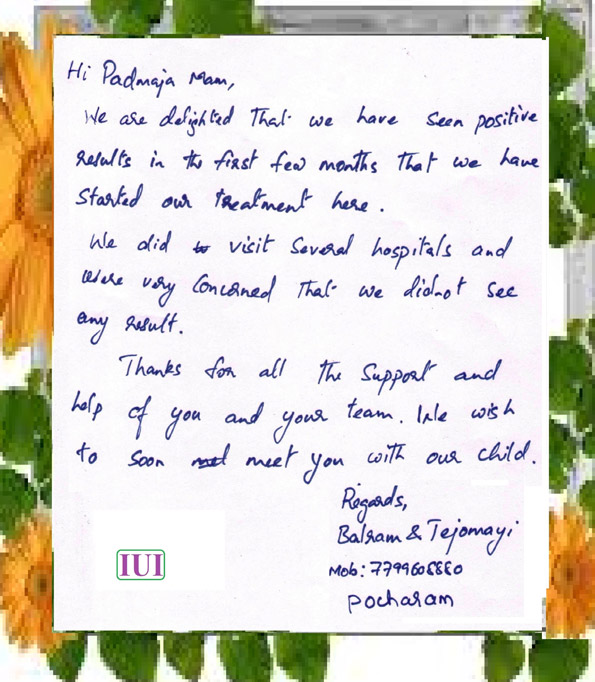 Hi Padmaja Mam,
We are delighted that we have seen positive
results in the first few months that we have
started our treatment here.
We did visit several hospitals and
were very concerned that we didnot see
any result.
Thanks for all the support and
help of you and your team. We wish
to soon meet you with our child.
Regards,
Balram & Tejomayi
Mob:
Pocharam
IUI